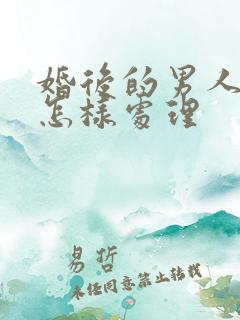 婚後的男人
怎樣處理
易哲
未经同意禁止转载